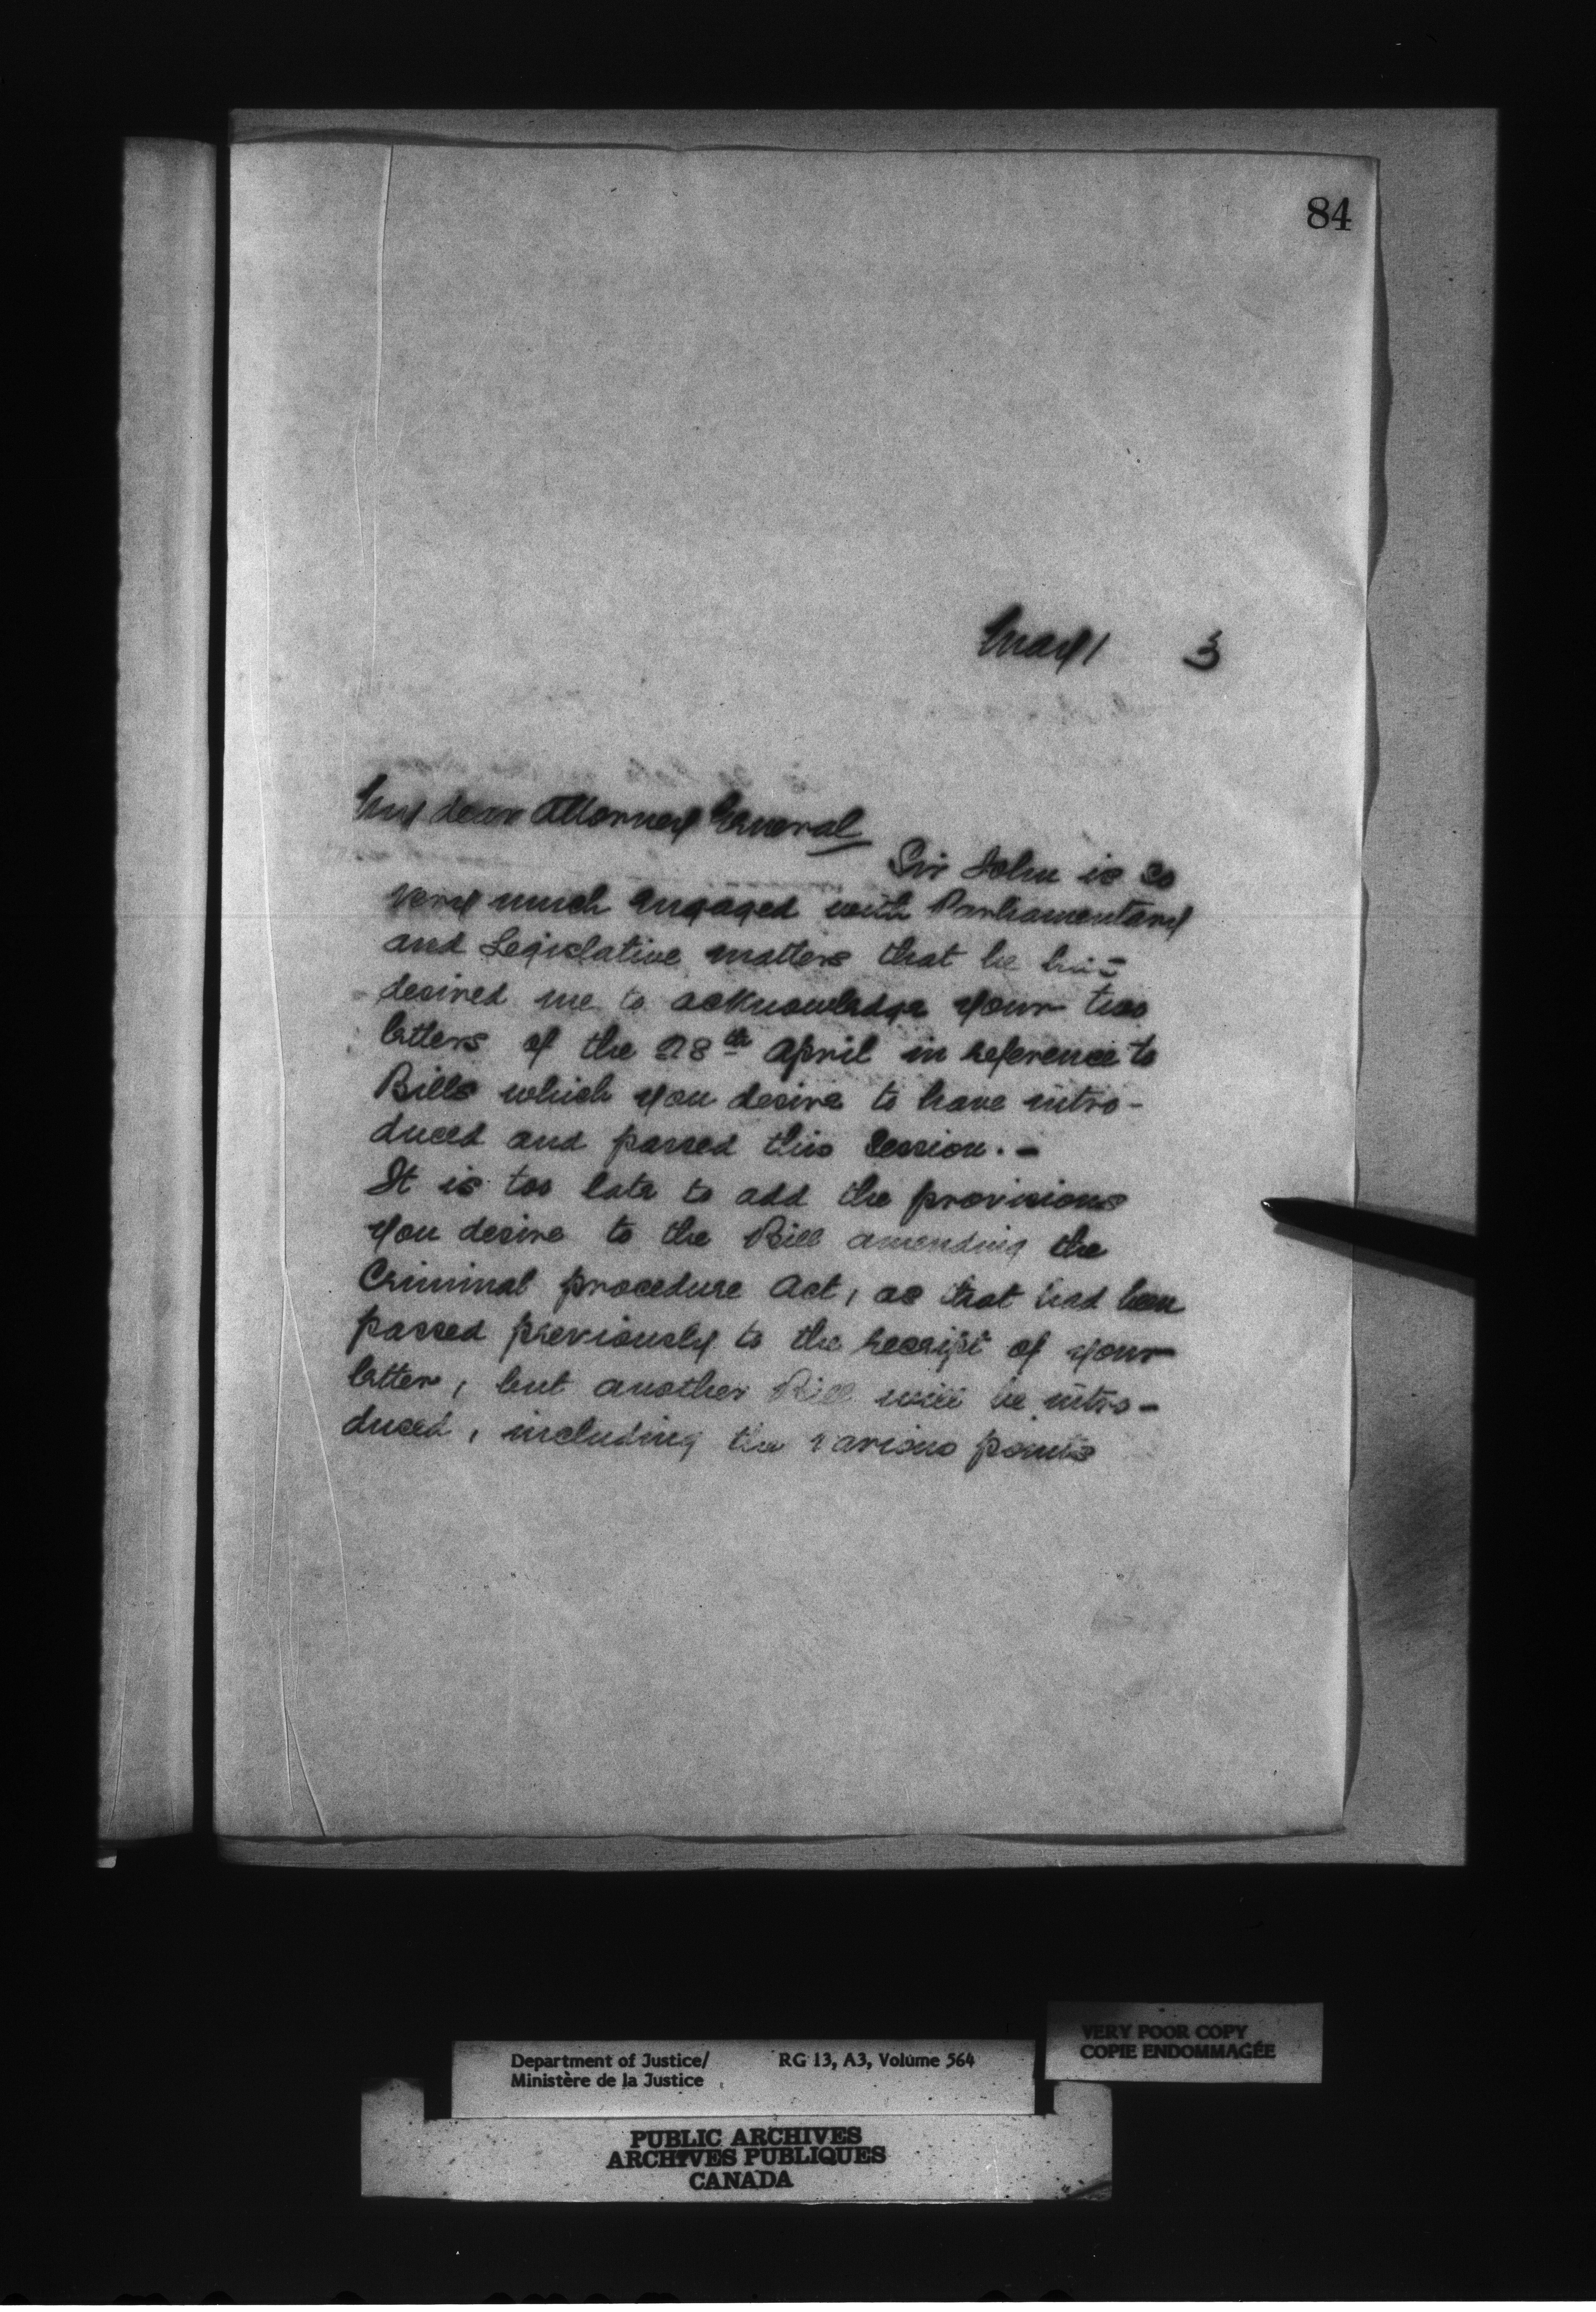 84
May 1 3
My dear Attorney General
Sir John is so
very much engaged with Parliamentary
and Legislative matters that he has
desired me to acknowledge your two
letters of the 28th April in reference to
Bills which you desire to have intro-
duced and passed this Session. -
It is too late to add the provisions
you desire to the Bill amending the
Criminal procedure Act, as that had been
passed previously to the receipt of your
letter, but another Bill will be intro-
duced, including the various points
VERY POOR COPY
COPIE ENDOMMAGÉE
Department of Justice/ RG 13, A3, Volume 564
Ministère de la Justice
PUBLIC ARCHIVES
ARCHIVES PUBLIQUES
CANADA